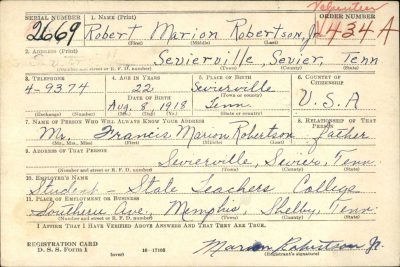 Volunteer
SERIAL NUMBER 1. NAME (Print) ORDER NUMBER
2669 Robert Marion Robertson, Jr V434A
(First) (Middle) (Last)
2. ADDRESS (Print)
Sevierville, Sevier, Tenn
(Number and street or R. F. D. number) (Town) (County) (State)
3. TELEPHONE 4. AGE IN YEARS 5. PLACE OF BIRTH 6. COUNTRY OF CITIZENSHIP
4-9374 22 Sevierville
DATE OF BIRTH (Town or county)
Aug. 8, 1918 Tenn. U.S.A
(Exchange) (Number) (Mo.) (Day) (Yr.) (State or country)
7. NAME OF PERSON WHO WILL ALWAYS KNOW YOUR ADDRESS 8. RELATIONSHIP OF THAT PERSON
Mr. Francis Marion Robertson father
(Mr., Mrs., Miss) (First) (Middle) (Last)
9. ADDRESS OF THAT PERSON
Sevierville, Sevier, Tenn.
(Number and street or R. F. D. number) (Town) (County) (State)
10. EMPLOYER'S NAME
Student - State Teachers College
11. PLACE OF EMPLOYMENT OR BUSINESS
Southern Ave., Memphis, Shelby, Tenn.
(Number and street or R. F. D. number) (Town) (County) (State)
I AFFIRM THAT I HAVE VERIFIED ABOVE ANSWERS AND THAT THEY ARE TRUE.
REGISTRATION CARD
D. S. S. Form 1 (over) 16-17105 Marion Robertson Jr.